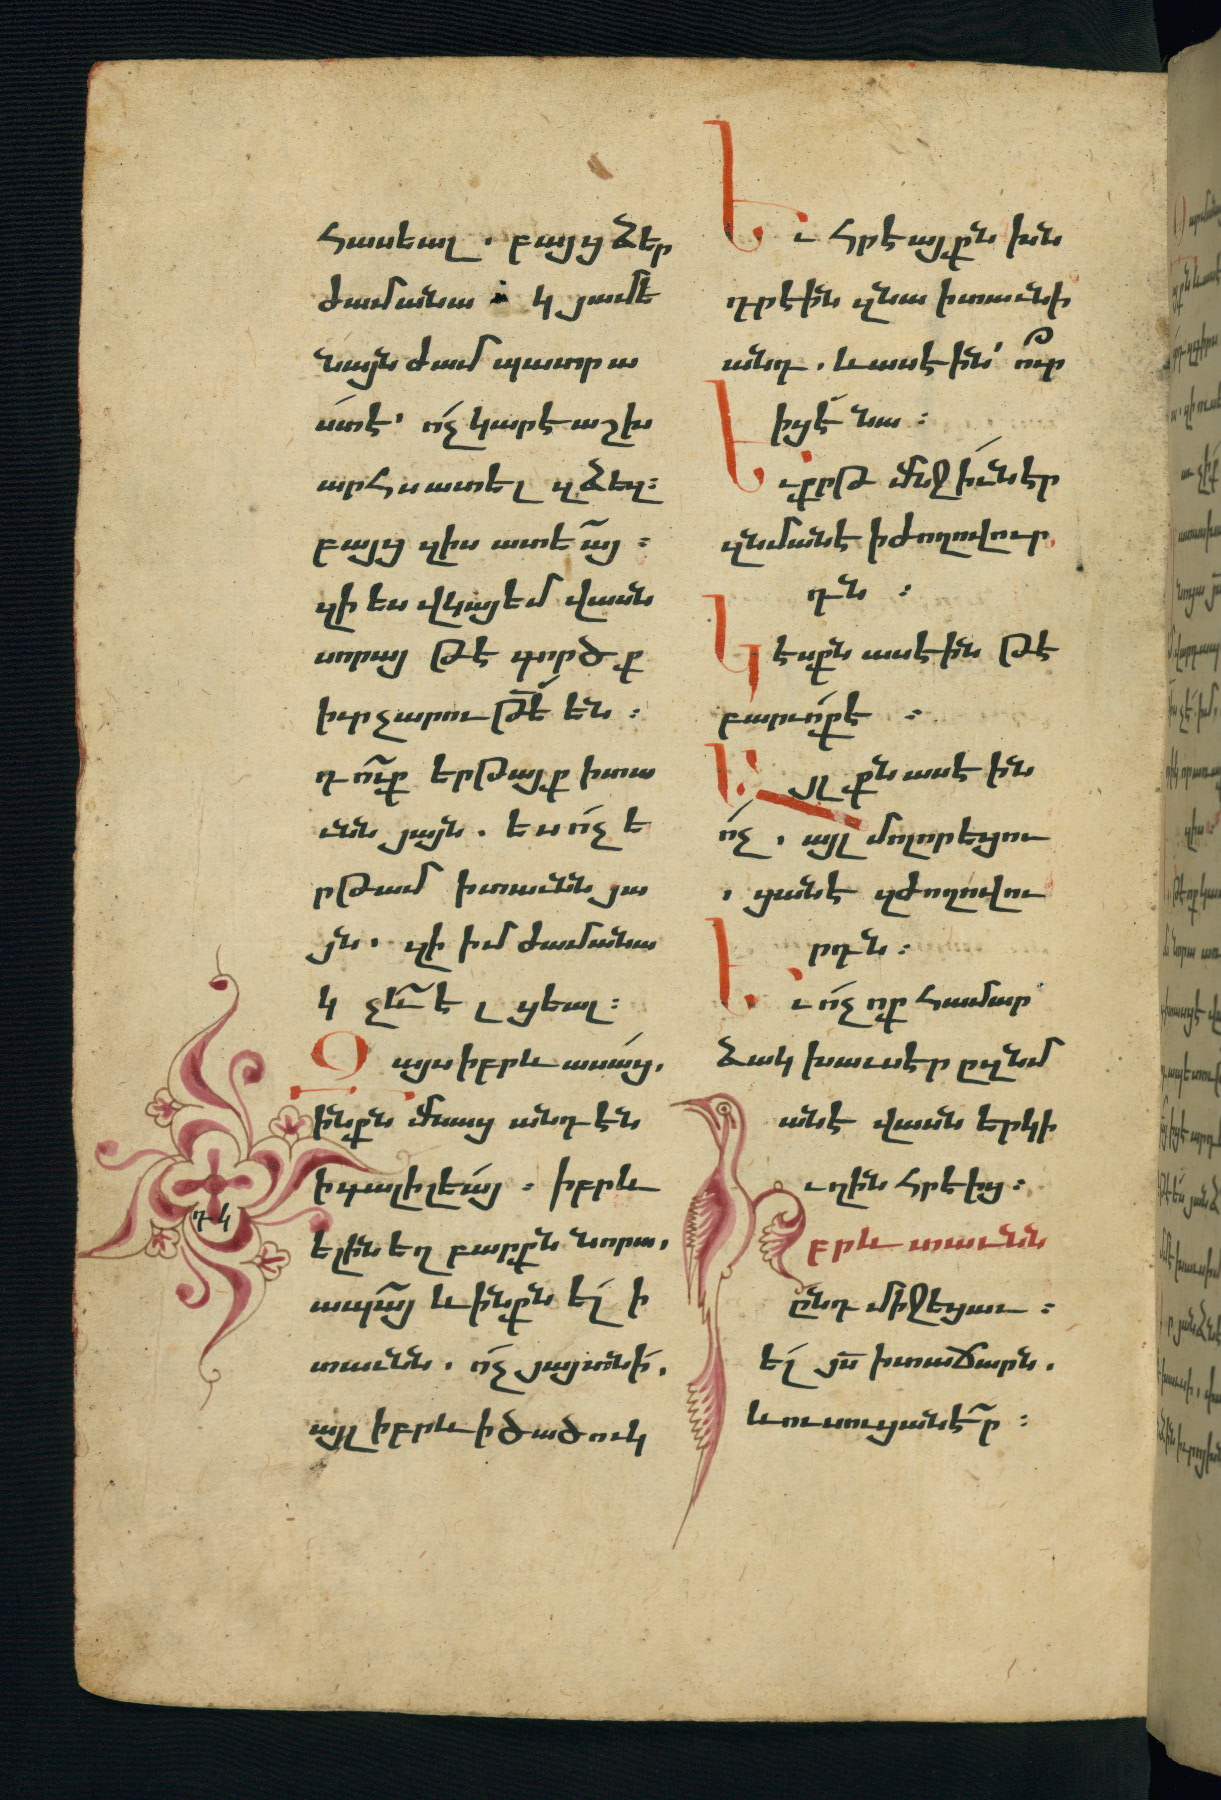 հասեալ. բայց ձեր
ժամանա կ յամե
նայն ժամ պատրա
ստ է՛ ո՛չ կարէ աշխ
արհս ատել զձեզ։
բայց զիս ատե՜այ։
զի ես վկայեմ վասն
սորայ թէ գործք
իւր չարութե՜ են։
դո՜ւք երթայք ի տա
ւնն յայն. ես ո՛չ ե
րթամ ի տաւնն յա
յն. զի իմ ժամանա
կ չև՜ է լցեալ։
Զայս իբրև ասա՛ց,
ինքն մնաց անդէն
ի գալիլեա՛յ։ իբրև
ելին եղբարքն նորա,
ապա՜յ և ինքն ել ի
տաւնն. ո՛չ յայտնի՛,
այլ իբրև ի ծածուկ
դկ
Եւ հրէայքն խն
դրէին զնա ի տաւնի
անդ. և ասէին՛ ո՞ւր
իցէ՛ նա։
Եւ քրթմնջի՛ւն էր
զնմանէ ի ժողովուր
դն։
Կէսքն ասէին թէ
բարւո՛ք է։
Եւ այլքն ասէին
ո՛չ, այլ մոլորեցու
ցանէ զժողովու
րդն։
Եւ ո՛չ ոք համար
ձակ խաւսէր ըզնմ
անէ վասն երկի
ւղին հրէից։
Իբրև տաւնն
ընդ միջեցաւ։
ել յս ի տաճարն.
և ուսուցանէ՜ր։